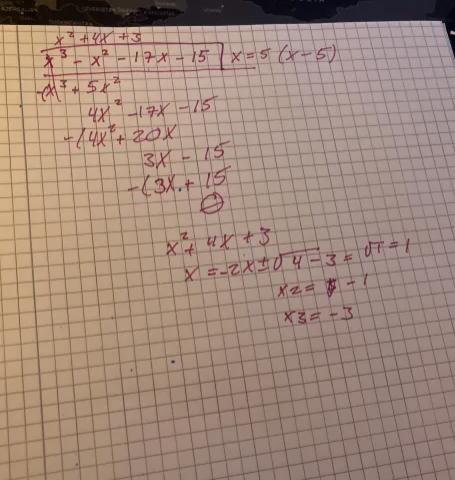 x² + 4x + 3
x³ - x² - 17x - 15 | x = 5 (x - 5)
-(x³ + 5x²
4x² - 17x - 15
-(4x² + 20x
3x - 15
-(3x + 15
0
x² + 4x + 3
x = -2x ± √4 - 3 = √1 = 1
x2 = - 1
x3 = - 3